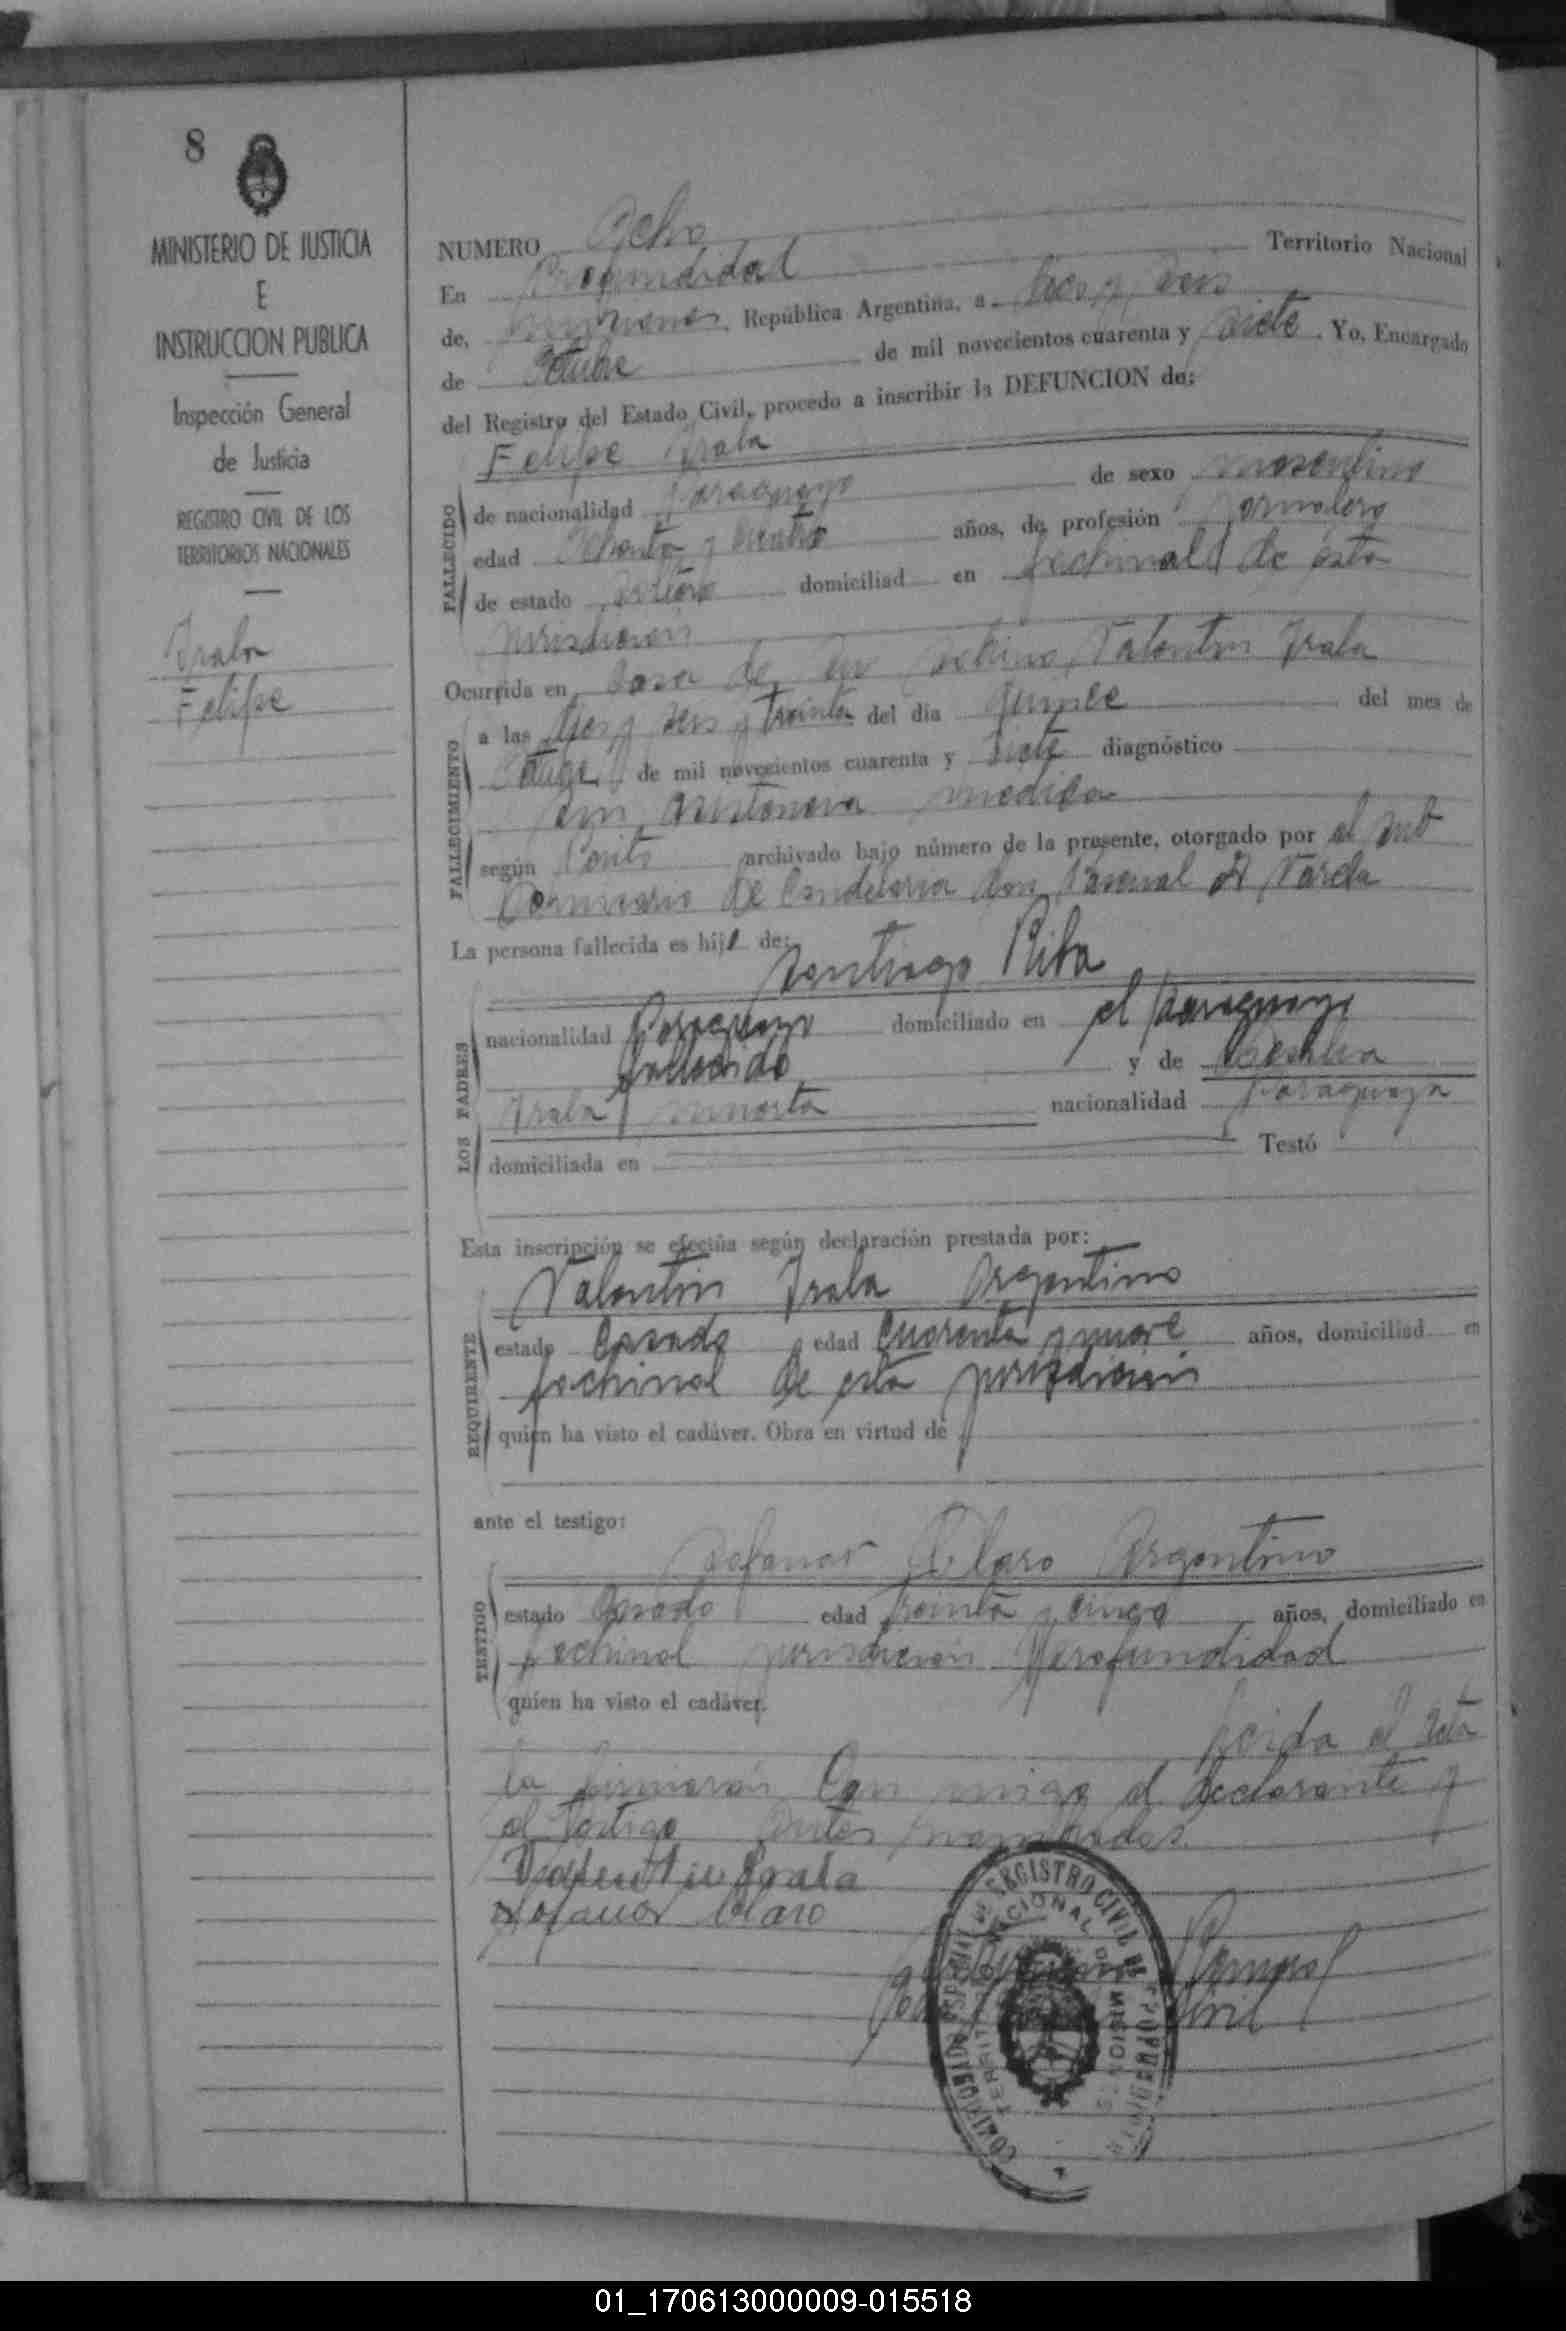 8
MINISTERIO DE JUSTICIA
E
INSTRUCCION PUBLICA
Inspección General
de Justicia
REGISTRO CIVIL DE LOS
TERRITORIOS NACIONALES
Irala
Felipe
NUMERO Ocho
En Profundidad Territorio Nacional
de, Misiones, República Argentina, a diez y seis
de Octubre de mil novecientos cuarenta y siete. Yo, Encargado
del Registro del Estado Civil, procedo a inscribir la DEFUNCION de:
Felipe Irala
FALLECIDO
de nacionalidad Paraguayo de sexo masculino
edad Ochenta y cuatro años, de profesión Jornalero
de estado soltero domiciliad en Pechinal de esta
jurisdicion
Ocurrida en Casa de su Valentin Irala
FALLECIMIENTO
a las diez y seis y treinta del día quince del mes de
de mil novecientos cuarenta y siete diagnóstico
sin asistencia medica
según archivado bajo número de la presente, otorgado por el sub
Comisario de Candelaria don Pascual A Varela
La persona fallecida es hijo de:
Santiago Riba
LOS PADRES
nacionalidad Paraguayo domiciliado en el Paraguayo
fallecido y de
Irala muerta nacionalidad Paraguaya
domiciliada en Testó
Esta inscripción se efectúa según declaración prestada por:
Valentin Irala Argentino
REQUIRENTE
estado Casado edad cuarenta y nueve años, domiciliad en
Pechinal de esta jurisdicion
quien ha visto el cadáver. Obra en virtud de
ante el testigo:
Claro Argentino
TESTIGO
estado Casado edad treinta y cinco años, domiciliado en
Pechinal jurisdicion Profundidad
quien ha visto el cadáver.
Leida el Acta
la firmaron Con migo el declarante y
el testigo antes nombrados.
Valentin Irala
Claro
REGISTRO CIVIL DE PROFUNDIDAD
TERRITORIO NACIONAL DE MISIONES
Civil
01_170613000009-015518